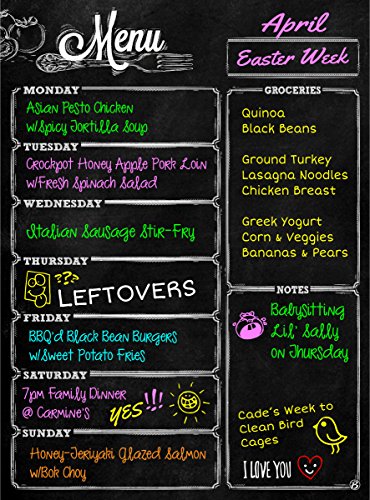 Menu
MONDAY
Asian Pesto Chicken
w/Spicy Tortilla Soup
TUESDAY
Crockpot Honey Apple Pork Loin
w/Fresh Spinach Salad
WEDNESDAY
Italian Sausage Stir-Fry
THURSDAY
???
LEFTOVERS
FRIDAY
BBQ'd Black Bean Burgers
w/Sweet Potato Fries
SATURDAY
7pm Family Dinner
@ Carmine's YES!!!
SUNDAY
Honey-Jeriyaki Glazed Salmon
w/Bok Choy
April
Easter Week
GROCERIES
Quinoa
Black Beans
Ground Turkey
Lasagna Noodles
Chicken Breast
Greek Yogurt
Corn & Veggies
Bananas & Pears
NOTES
Babysitting
Lil' Sally
on Thursday
Cade's Week to
Clean Bird
Cages
I LOVE YOU